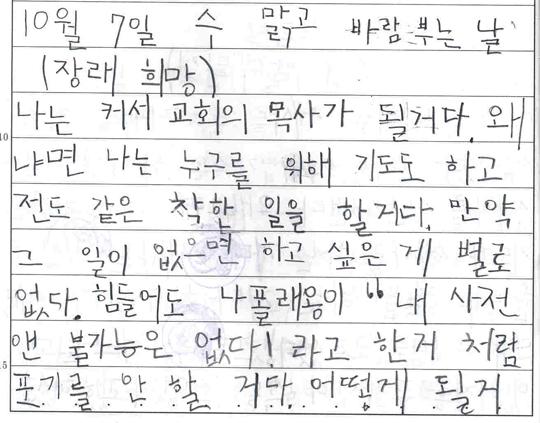 10월 7일 수 맑고 바람 부는 날
(장래 희망)
나는 커서 교회의 목사가 될거다. 왜
냐면 나는 누구를 위해 기도도 하고
전도 같은 착한 일을 할거다. 만약
그 일이 없으면 하고 싶은 게 별로
없다. 힘들어도 나폴래옹이 “ 내 사전
앤 불가능은 없다! 라고 한거 처럼
포기를 안 할 거다. 어떻게 될지